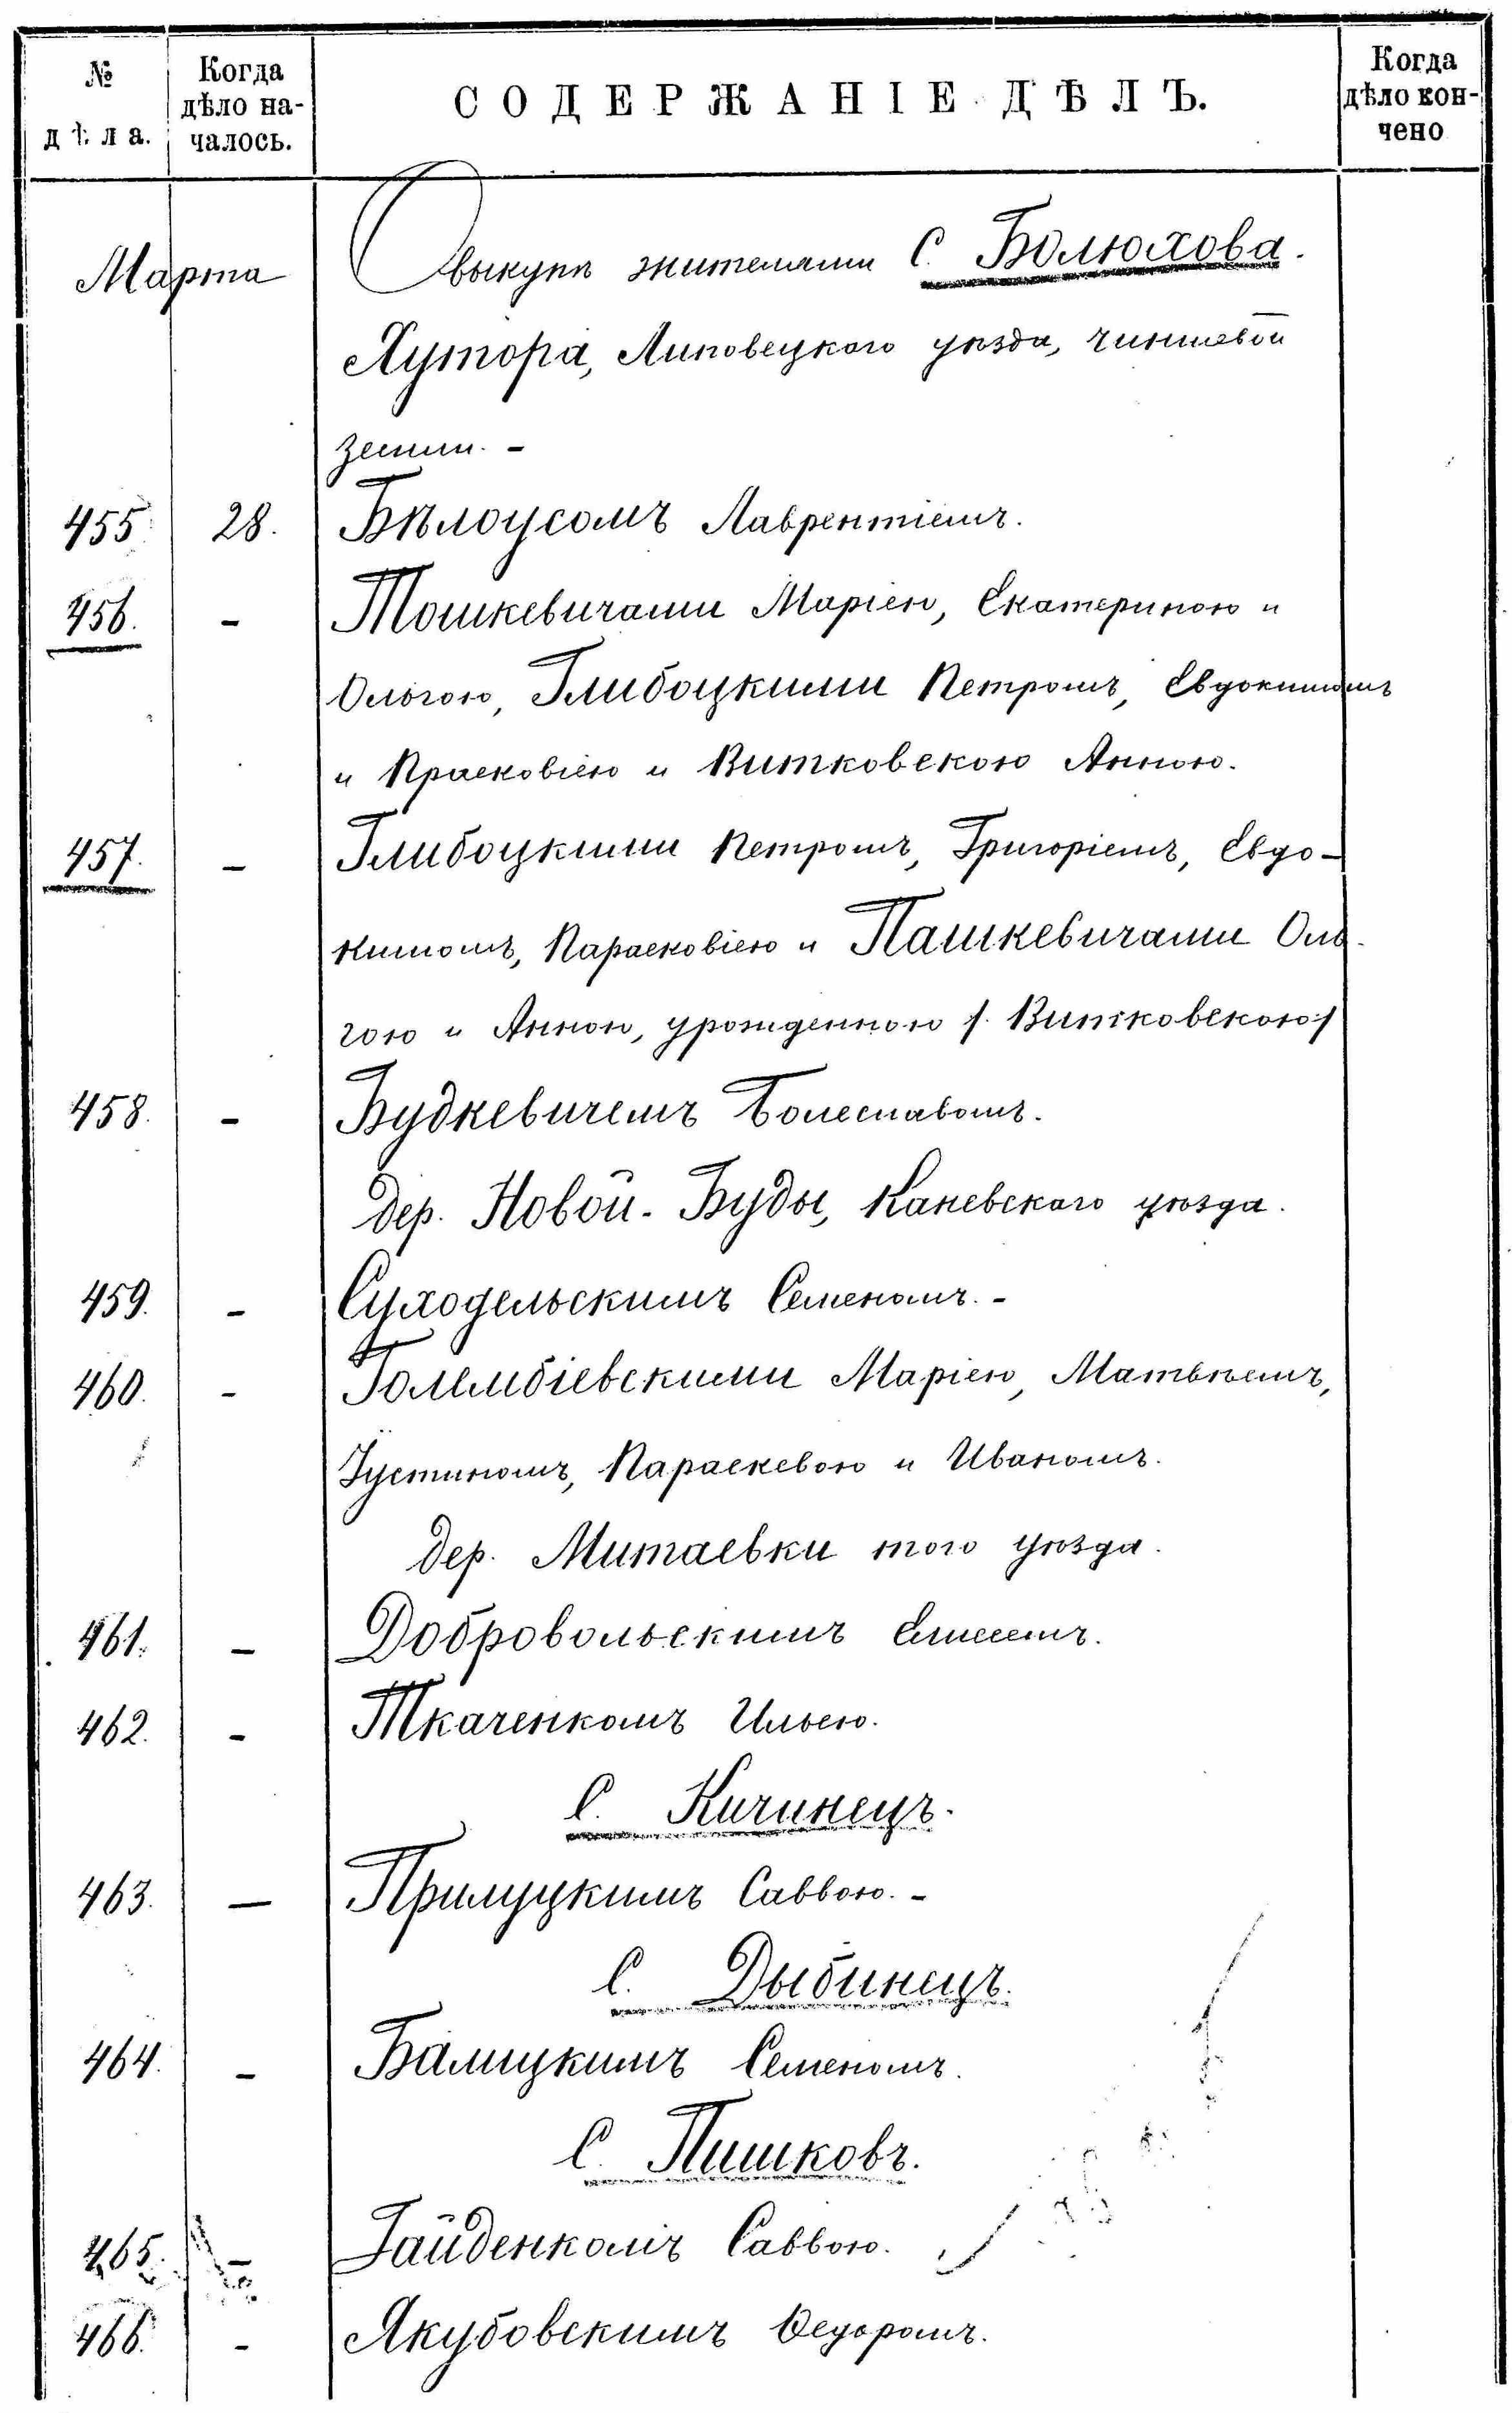 № дѣла.
Когда дѣло началось.
СОДЕРЖАНІЕ ДѢЛЪ.
Когда дѣло кончено
Марта
О выкупѣ жителями С. Болюхова
Хутора, Липовецкого уѣзда, чиншевой
земли. -
455 28. Бѣлоусомъ Лаврентіемъ.
456. - Тошкевичами Маріею, Екатериною и
Ольгою, Глибоцкими Петромъ, Евдокимомъ
и Прасковіею и Витковскою Анною.
457. - Глибоцкими Петромъ, Григоріемъ, Евдо-
кимомъ, Парасковіею и Пашкевичами Оль-
гою и Анною, урожденною /. Витковскою./
458. - Будкевичемъ Болеславомъ.
дер. Новой-Буды, Каневскаго уѣзда.
459. - Суходельскимъ Семеномъ. -
460. - Голембіевскими Маріею, Матвѣемъ,
Іустиномъ, Параскевою и Иваномъ.
дер. Митаевки того уѣзда.
461. - Добровольскимъ
462. - Ткаченкомъ Ильею.
С. Кичинецъ.
463. - Прилуцкимъ Саввою. -
С. Дыбинецъ.
464. - Балицкимъ Семеномъ.
С. Пишковъ.
465. - Гайденкомъ Саввою.
466. - Якубовскимъ Ѳедоромъ.